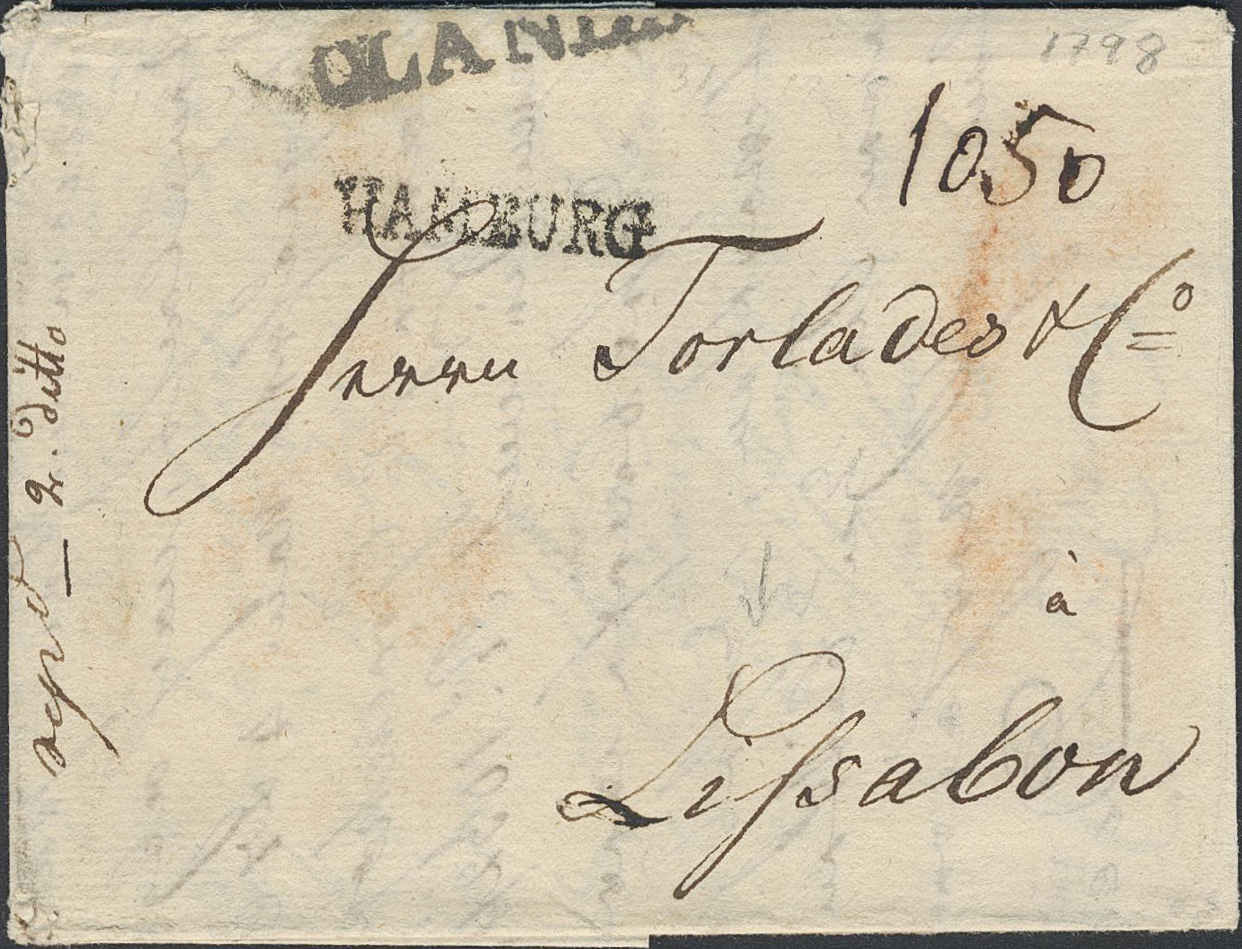 OLANDA
1798
1050
HAMBURG
Herrn Torlades & Co
à
Lissabon
2. ditto